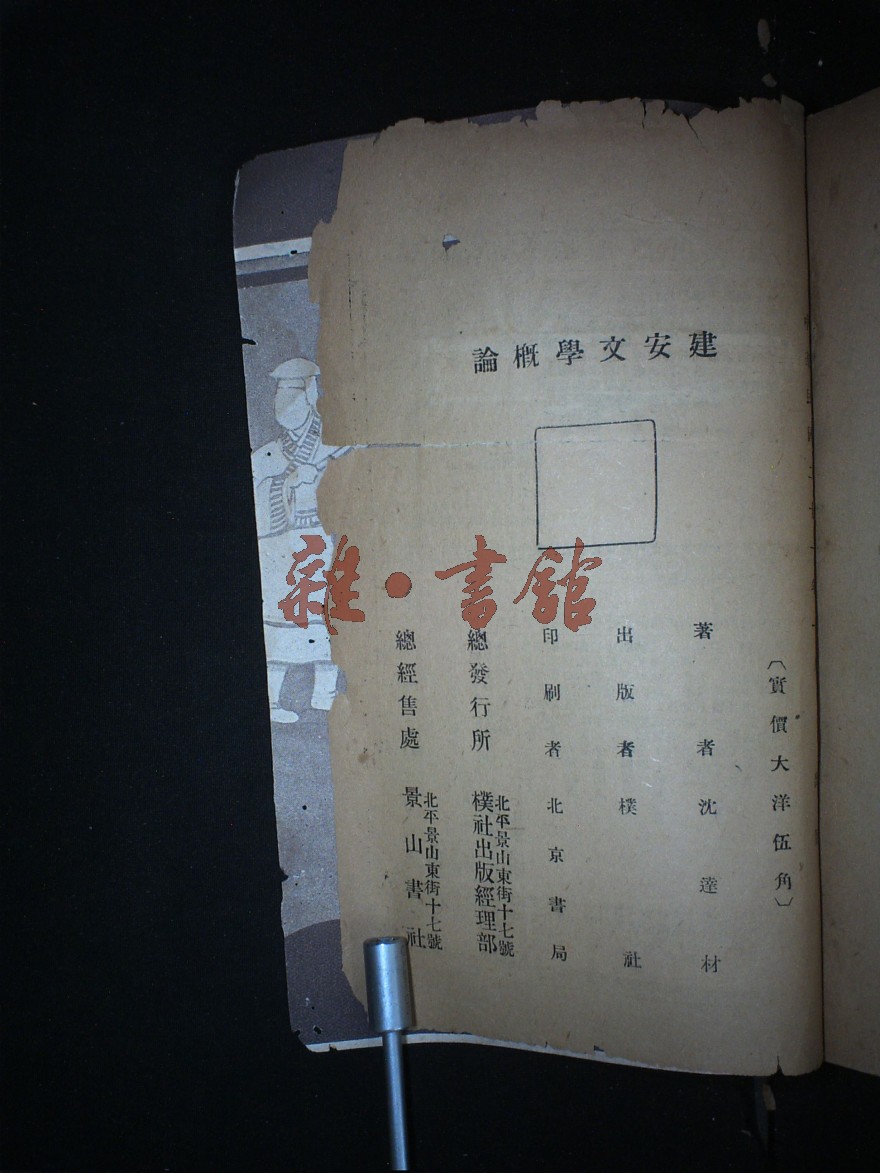 建安文學概論
（實價大洋伍角）
著者沈達材
出版者樸社
印刷者北京書局
總發行所 北平景山東街十七號 樸社出版經理部
總經售處 北平景山東街十七號 景山書社
雜·書館